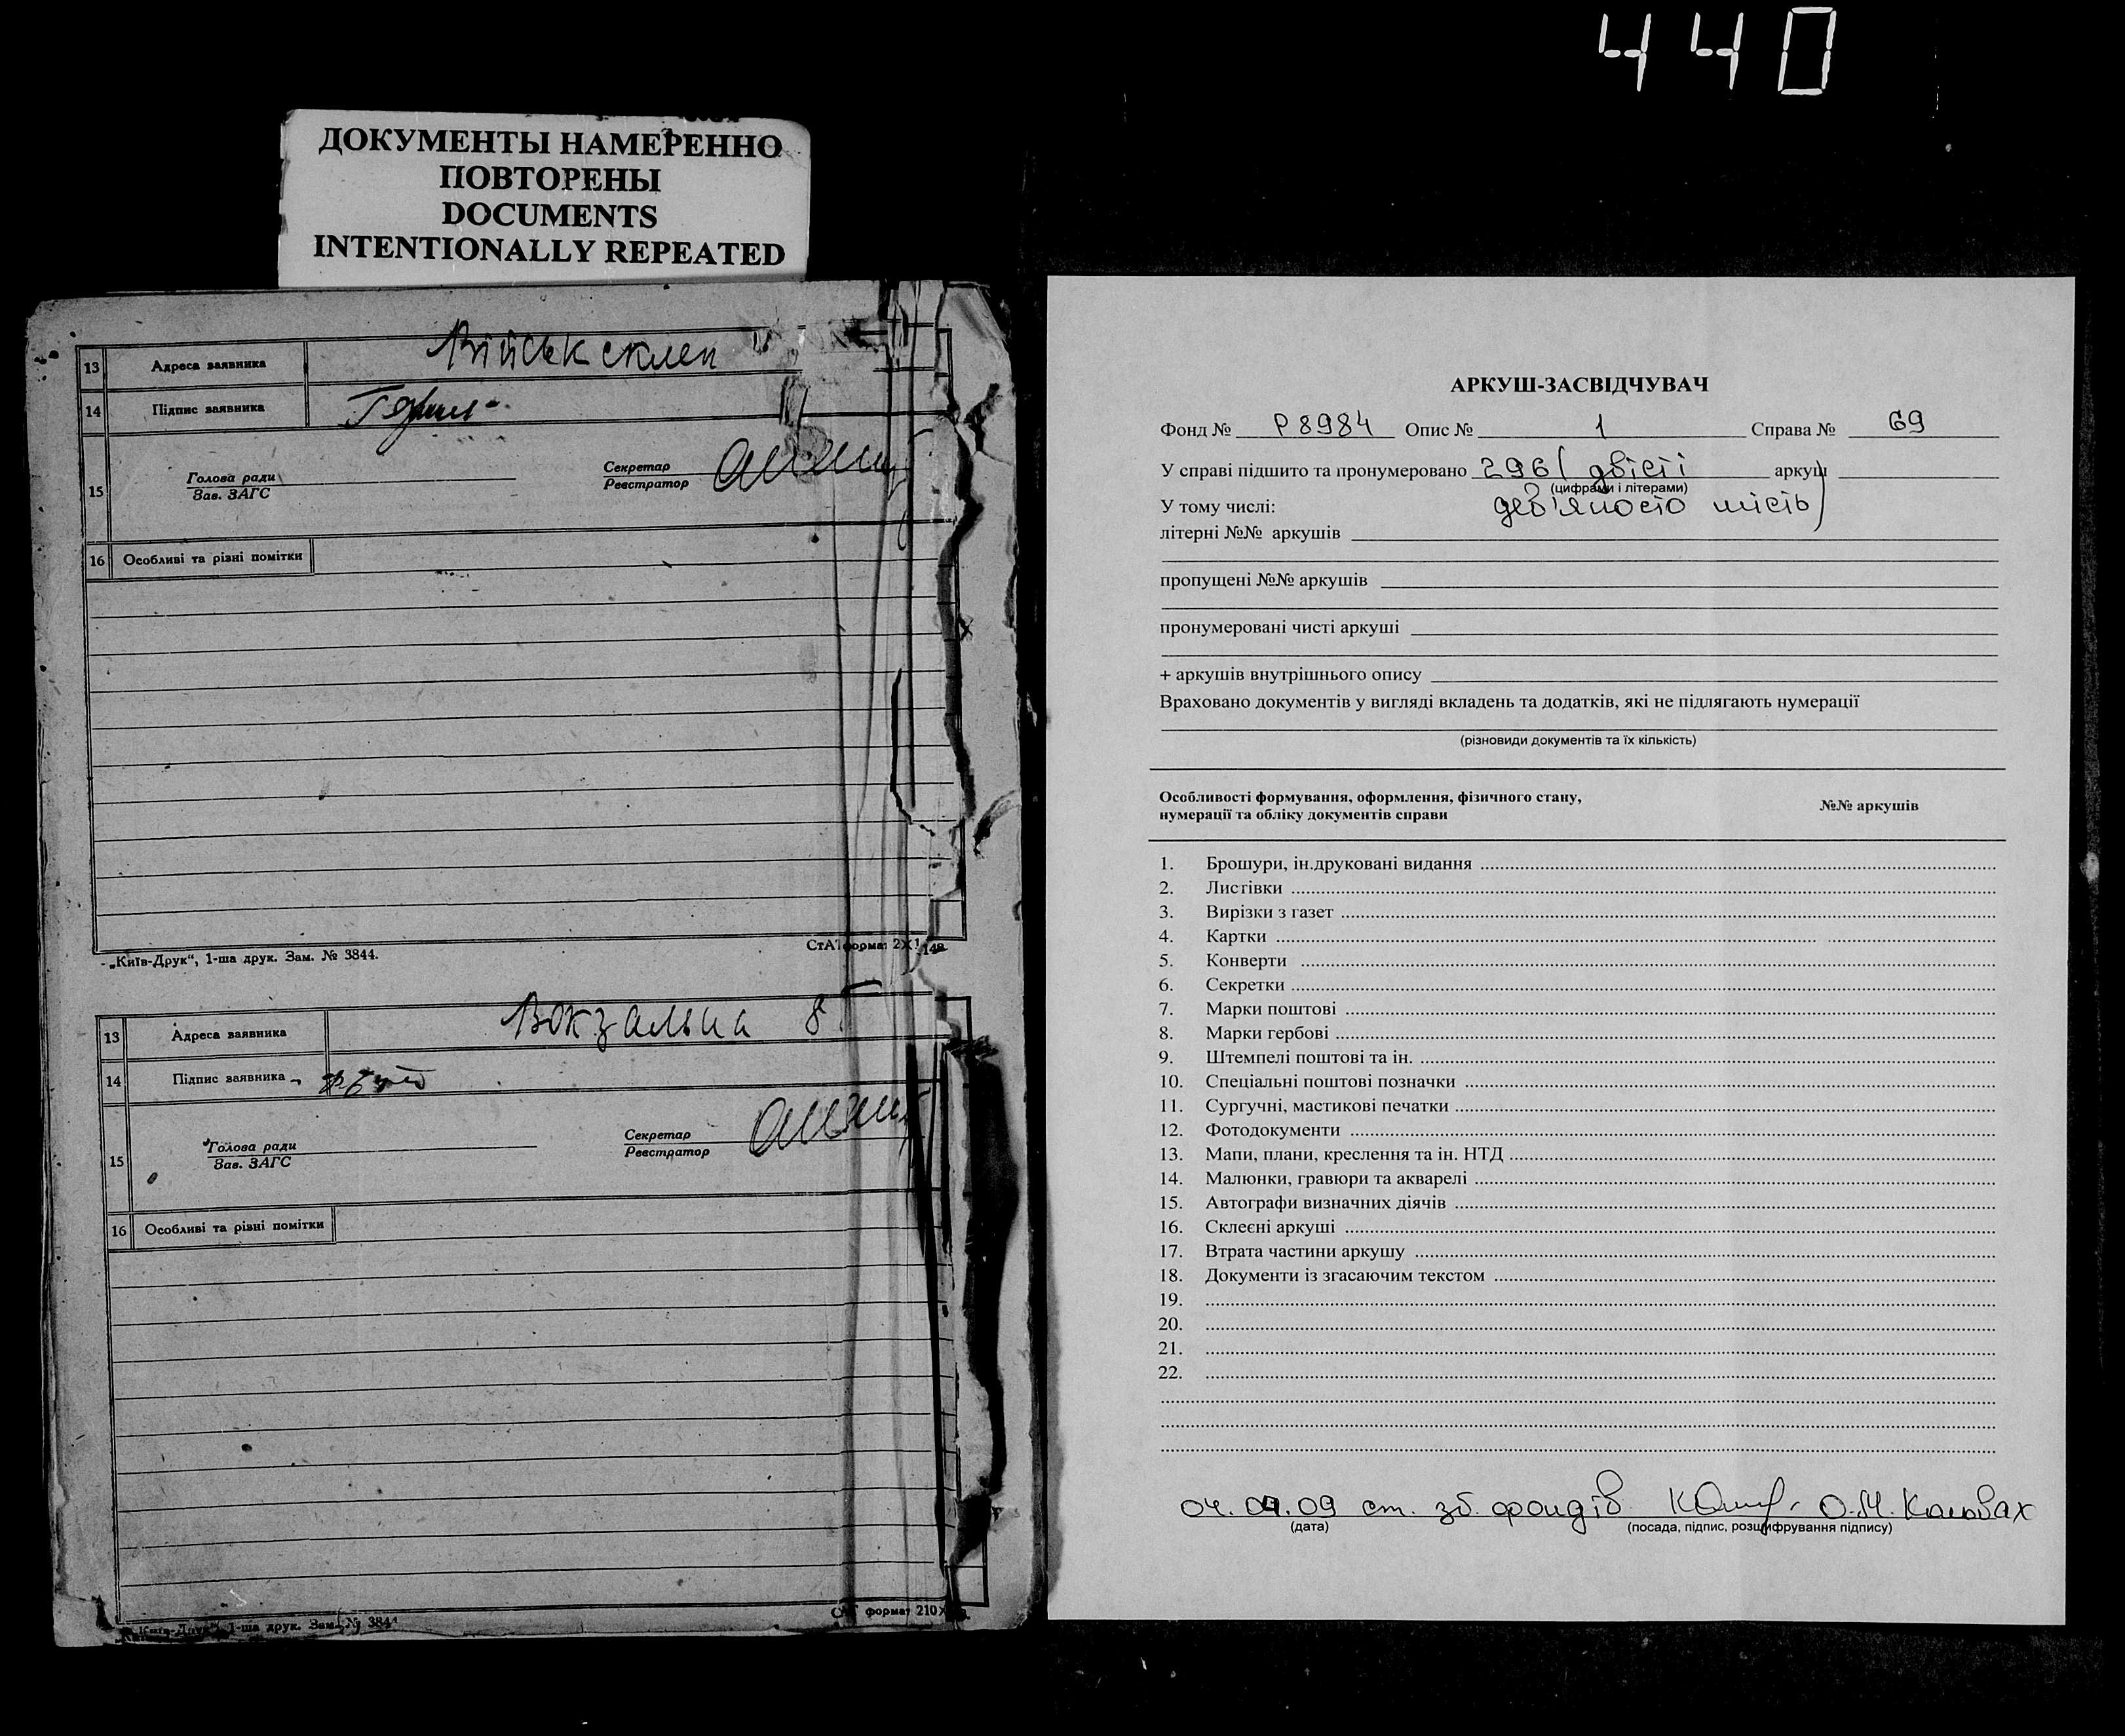 440
ДОКУМЕНТЫ НАМЕРЕННО
ПОВТОРЕНЫ
DOCUMENTS
INTENTIONALLY REPEATED
13 Адреса заявника Військсклеп
14 Підпис заявника
15 Голова ради
Зав. ЗАГС
Секретар
Реєстратор
16 Особливі та різні помітки
„Київ-Друк“, 1-ша друк. Зам. № 3844.
СтАТ формат 2X1 148
13 Адреса заявника Вокзальна 8
14 Підпис заявника
15 Голова ради
Зав. ЗАГС
Секретар
Реєстратор
16 Особливі та різні помітки
„Київ-Друк“, 1-ша друк. Зам. № 3844
формат 210X
АРКУШ-ЗАСВІДЧУВАЧ
Фонд № Р8984 Опис № 1 Справа № 69
У справі підшито та пронумеровано 296 (двісті аркуш
(цифрами і літерами)
У тому числі: дев'яносто шість)
літерні №№ аркушів
пропущені №№ аркушів
пронумеровані чисті аркуші
+ аркушів внутрішнього опису
Враховано документів у вигляді вкладень та додатків, які не підлягають нумерації
(різновиди документів та їх кількість)
Особливості формування, оформлення, фізичного стану,
нумерації та обліку документів справи
№№ аркушів
1. Брошури, ін.друковані видання
2. Листівки
3. Вирізки з газет
4. Картки
5. Конверти
6. Секретки
7. Марки поштові
8. Марки гербові
9. Штемпелі поштові та ін.
10. Спеціальні поштові позначки
11. Сургучні, мастикові печатки
12. Фотодокументи
13. Мапи, плани, креслення та ін. НТД
14. Малюнки, гравюри та акварелі
15. Автографи визначних діячів
16. Склеєні аркуші
17. Втрата частини аркушу
18. Документи із згасаючим текстом
19.
20.
21.
22.
04.09.09 ст. зб. фондів О.М.
(дата) (посада, підпис, розшифрування підпису)